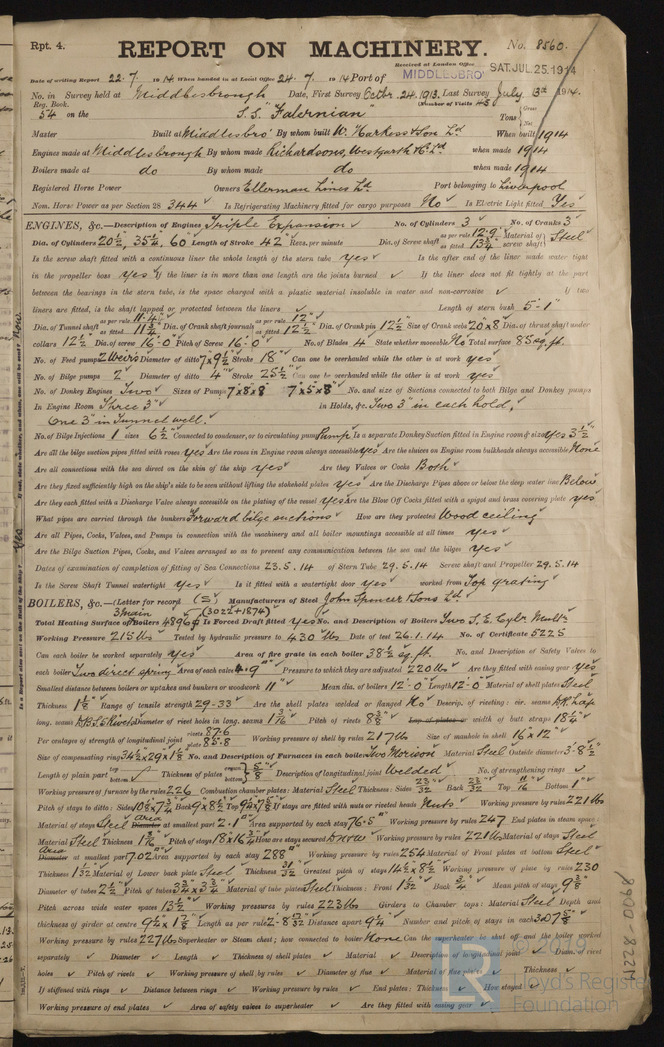 Rpt. 4. REPORT ON MACHINERY. No. 8560.
Received at London Office SAT. JUL. 25. 1914
Date of writing Report 22.7.1914 When handed in at Local Office 24.7.1914 Port of MIDDLESBRO'
No. in Reg. Book. Survey held at Middlesbrough Date, First Survey Octbr. 24. 1913. Last Survey July 13th 1914.
(Number of Visits 45)
54 on the S.S. "Falernian" Tons Gross Net
Master Built at Middlesbro' By whom built W. Harkess & Son Ld When built 1914
Engines made at Middlesbrough By whom made Richardsons, Westgarth & Co Ld when made 1914
Boilers made at do By whom made do when made 1914
Registered Horse Power Owners Ellerman Lines Ld Port belonging to Liverpool
Nom. Horse Power as per Section 28 344 Is Refrigerating Machinery fitted for cargo purposes No Is Electric Light fitted Yes
ENGINES, &c.—Description of Engines Triple Expansion No. of Cylinders 3 No. of Cranks 3
Dia. of Cylinders 20½, 35½, 60 Length of Stroke 42 Revs. per minute Dia. of Screw shaft as per rule 12.9" as fitted 13¾" Material of screw shaft Steel
Is the screw shaft fitted with a continuous liner the whole length of the stern tube yes Is the after end of the liner made water tight
in the propeller boss yes If the liner is in more than one length are the joints burned ✓ If the liner does not fit tightly at the part
between the bearings in the stern tube, is the space charged with a plastic material insoluble in water and non-corrosive ✓ If two
liners are fitted, is the shaft lapped or protected between the liners ✓ Length of stern bush 5'-1"
Dia. of Tunnel shaft as per rule 11.4" as fitted 11¾" Dia. of Crank shaft journals as per rule 12" as fitted 12½" Dia. of Crank pin 12½ Size of Crank webs 20x8 Dia. of thrust shaft under
collars 12½ Dia. of screw 16'-0" Pitch of Screw 16'-0" No. of Blades 4 State whether moveable No Total surface 85 sq. ft.
No. of Feed pumps 2 Weirs Diameter of ditto 7x9½ Stroke 18" Can one be overhauled while the other is at work yes
No. of Bilge pumps 2 Diameter of ditto 4" Stroke 25½ Can one be overhauled while the other is at work yes
No. of Donkey Engines Two Sizes of Pumps 7x8x8 7x5x8 No. and size of Suctions connected to both Bilge and Donkey pumps
In Engine Room Three 3" in Holds, &c. Two 3" in each hold,
One 3" in Tunnel well.
No. of Bilge Injections 1 sizes 6½ Connected to condenser, or to circulating pump Pump Is a separate Donkey Suction fitted in Engine room & size Yes 3½
Are all the bilge suction pipes fitted with roses yes Are the roses in Engine room always accessible yes Are the sluices on Engine room bulkheads always accessible None
Are all connections with the sea direct on the skin of the ship yes Are they Valves or Cocks Both
Are they fixed sufficiently high on the ship's side to be seen without lifting the stokehold plates yes Are the Discharge Pipes above or below the deep water line Below
Are they each fitted with a Discharge Valve always accessible on the plating of the vessel yes Are the Blow Off Cocks fitted with a spigot and brass covering plate yes
What pipes are carried through the bunkers Forward bilge suctions How are they protected Wood ceiling
Are all Pipes, Cocks, Valves, and Pumps in connection with the machinery and all boiler mountings accessible at all times yes
Are the Bilge Suction Pipes, Cocks, and Valves arranged so as to prevent any communication between the sea and the bilges yes
Dates of examination of completion of fitting of Sea Connections 23.5.14 of Stern Tube 29.5.14 Screw shaft and Propeller 29.5.14
Is the Screw Shaft Tunnel watertight yes Is it fitted with a watertight door yes worked from Top grating
BOILERS, &c.—(Letter for record (S)) Manufacturers of Steel John Spencer & Sons Ld.
3 main (3022+1874)
Total Heating Surface of Boilers 4896 Is Forced Draft fitted yes No. and Description of Boilers Two S.E. Cylr Multr
Working Pressure 215 lbs Tested by hydraulic pressure to 430 lbs Date of test 26.1.14 No. of Certificate 5225
Can each boiler be worked separately yes Area of fire grate in each boiler 38½ sq. ft. No. and Description of Safety Valves to
each boiler Two direct spring Area of each valve 4.9" Pressure to which they are adjusted 220 lbs Are they fitted with easing gear yes
Smallest distance between boilers or uptakes and bunkers or woodwork 11" Mean dia. of boilers 12'-0" Length 12'-0" Material of shell plates Steel
Thickness 1⅛ Range of tensile strength 29-33 Are the shell plates welded or flanged No Descrip. of riveting: cir. seams DR. Lap
long. seams Diameter of rivet holes in long. seams 1 3/16 Pitch of rivets 8⅝ Lap of plates or width of butt straps 18¼
Per centages of strength of longitudinal joint rivets 87.6 plate 85.8 Working pressure of shell by rules 217 lbs Size of manhole in shell 16"x12"
Size of compensating ring 34½x29x1⅛ No. and Description of Furnaces in each boiler Two Morison Material Steel Outside diameter 3'-8½"
Length of plain part top bottom Thickness of plates 5/8 Description of longitudinal joint Welded No. of strengthening rings ✓
Working pressure of furnace by the rules 226 Combustion chamber plates: Material Steel Thickness: Sides 23/32 Back 23/32 Top 11/16 Bottom 1"
Pitch of stays to ditto: Sides 10⅜x7½ Back 9x8½ Top 9¼x7⅝ If stays are fitted with nuts or riveted heads Nuts Working pressure by rules 221 lbs
Material of stays Steel Area at smallest part 2.1" Area supported by each stay 76.5" Working pressure by rules 247 End plates in steam space:
Material Steel Thickness 1 3/16 Pitch of stays 18x16¾ How are stays secured DNW Working pressure by rules 221 lbs Material of stays Steel
Area at smallest part 7.02" Area supported by each stay 288" Working pressure by rules 254 Material of Front plates at bottom Steel
Thickness 1 1/32 Material of Lower back plate Steel Thickness 31/32 Greatest pitch of stays 14½x8½ Working pressure of plate by rules 230
Diameter of tubes 2½ Pitch of tubes 3¾x3¾ Material of tube plates Steel Thickness: Front 1 1/32 Back ¾ Mean pitch of stays 9⅜
Pitch across wide water spaces 13½ Working pressures by rules 223 lbs Girders to Chamber tops: Material Steel Depth and
thickness of girder at centre 9½x1⅞ Length as per rule 2'-8 17/32 Distance apart 9¼ Number and pitch of stays in each 3 @ 7⅝
Working pressure by rules 227 lbs Superheater or Steam chest; how connected to boiler None Can the superheater be shut off and the boiler worked
separately ✓ Diameter ✓ Length ✓ Thickness of shell plates ✓ Material ✓ Description of longitudinal joint ✓ Diam. of rivet
holes ✓ Pitch of rivets ✓ Working pressure of shell by rules ✓ Diameter of flue ✓ Material of flue plates ✓ Thickness ✓
If stiffened with rings ✓ Distance between rings ✓ Working pressure by rules ✓ End plates: Thickness ✓ How stayed ✓
Working pressure of end plates ✓ Area of safety valves to superheater ✓ Are they fitted with easing gear ✓
© 2019
Lloyd's Register
Foundation